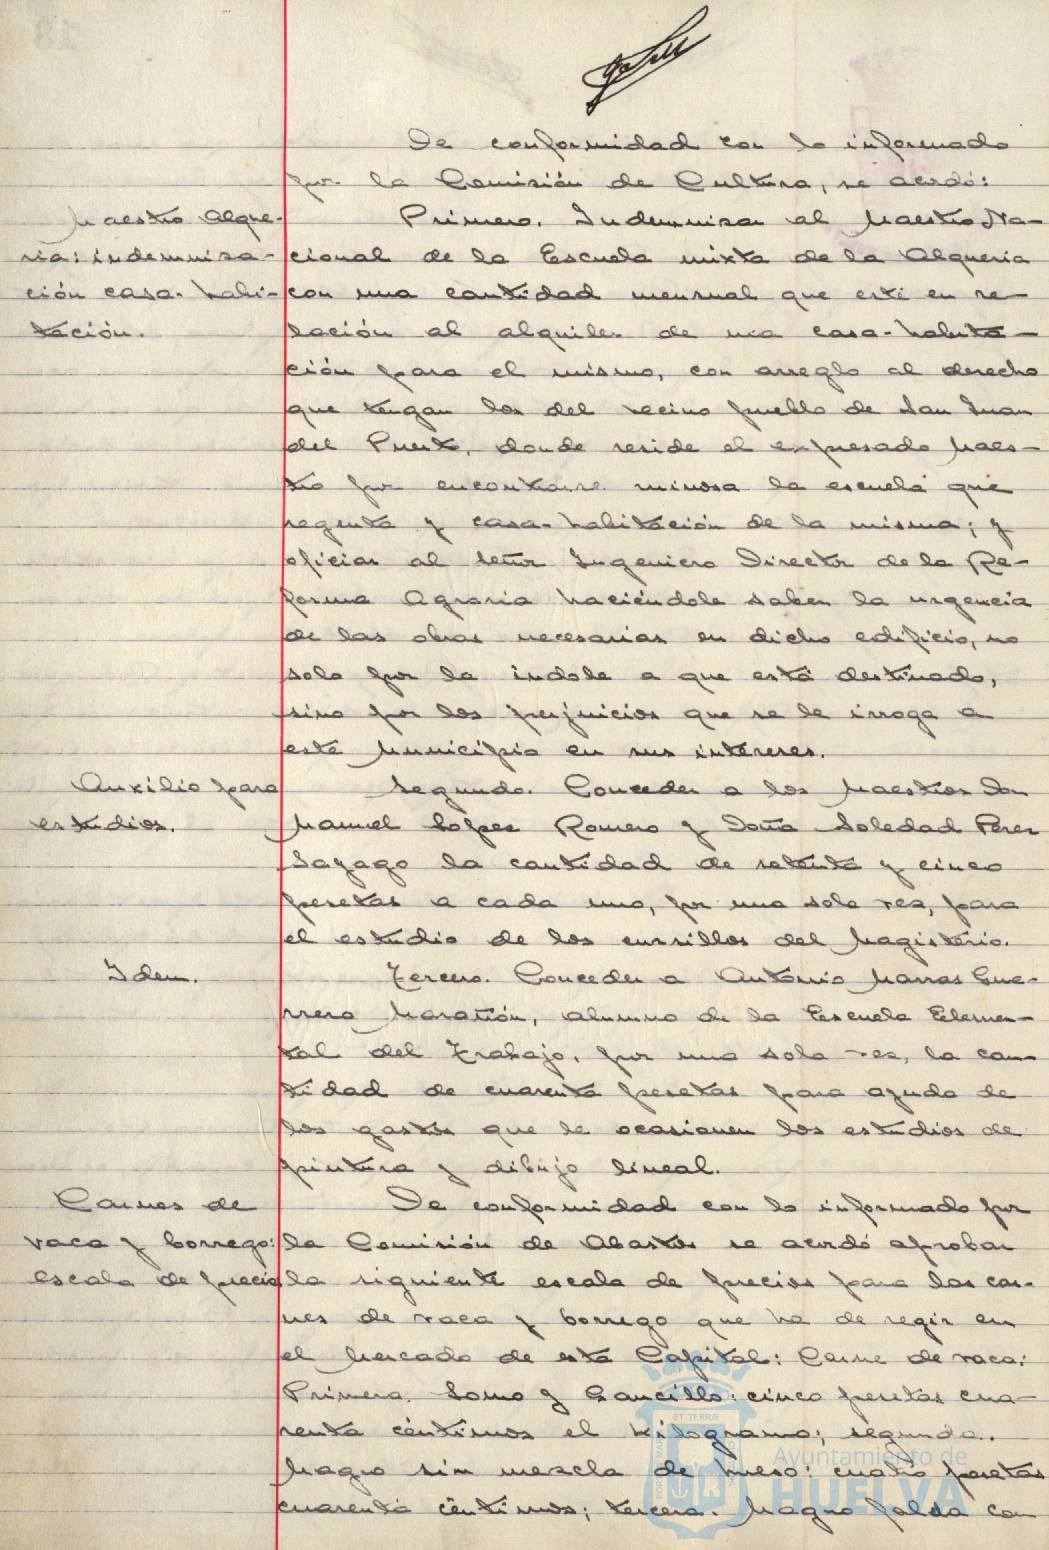 De conformidad con lo informado
por la Comisión de Cultura, se acordó:
Maestro Alque-
ria: indemniza-
ción casa-habi-
tación.
Primero. Indemnizar al Maestro Na-
cional de la Escuela mixta de la Alqueria
con una cantidad mensual que esté en re-
lación al alquiler de una casa-habita-
ción para el mismo, con arreglo al derecho
que tengan los del vecino pueblo de San Juan
del Puerto, donde reside el expresado Maes-
tro por encontrarse ruinosa la escuela que
regenta y casa-habitación de la misma; y
oficiar al Señor Ingeniero Director de la Re-
forma Agraria haciéndole saber la urgencia
de las obras necesarias en dicho edificio, no
solo por la indole a que está destinado,
sino por los perjuicios que se le irroga a
este Municipio en sus intereses.
Auxilio para
estudios.
Segundo. Conceder a los Maestros Don
Manuel López Romero y Doña Soledad Perez
Sayago la cantidad de setenta y cinco
pesetas a cada uno, por una sola vez, para
el estudio de los cursillos del Magisterio.
Idem.
Tercero. Conceder a Antonio Marras Gue-
rrero Maratión, alumno de la Escuela Elemen-
tal del Trabajo, por una sola vez, la can-
tidad de cuarenta pesetas para ayuda de
los gastos que le ocasionen los estudios de
pintura y dibujo lineal.
Carnes de
vaca y borrego:
escala de precio
De conformidad con lo informado por
la Comisión de Abastos se acordó aprobar
la siguiente escala de precios para las car-
nes de vaca y borrego que ha de regir en
el Mercado de esta Capital: Carne de vaca:
Primera. Lomo y Gancillo: cinco pesetas cua-
renta céntimos el kilogramo; segunda.
Magro sin mezcla de hueso: cuatro pesetas
cuarenta céntimos; tercera. Magro falda con
Ayuntamiento de
HUELVA